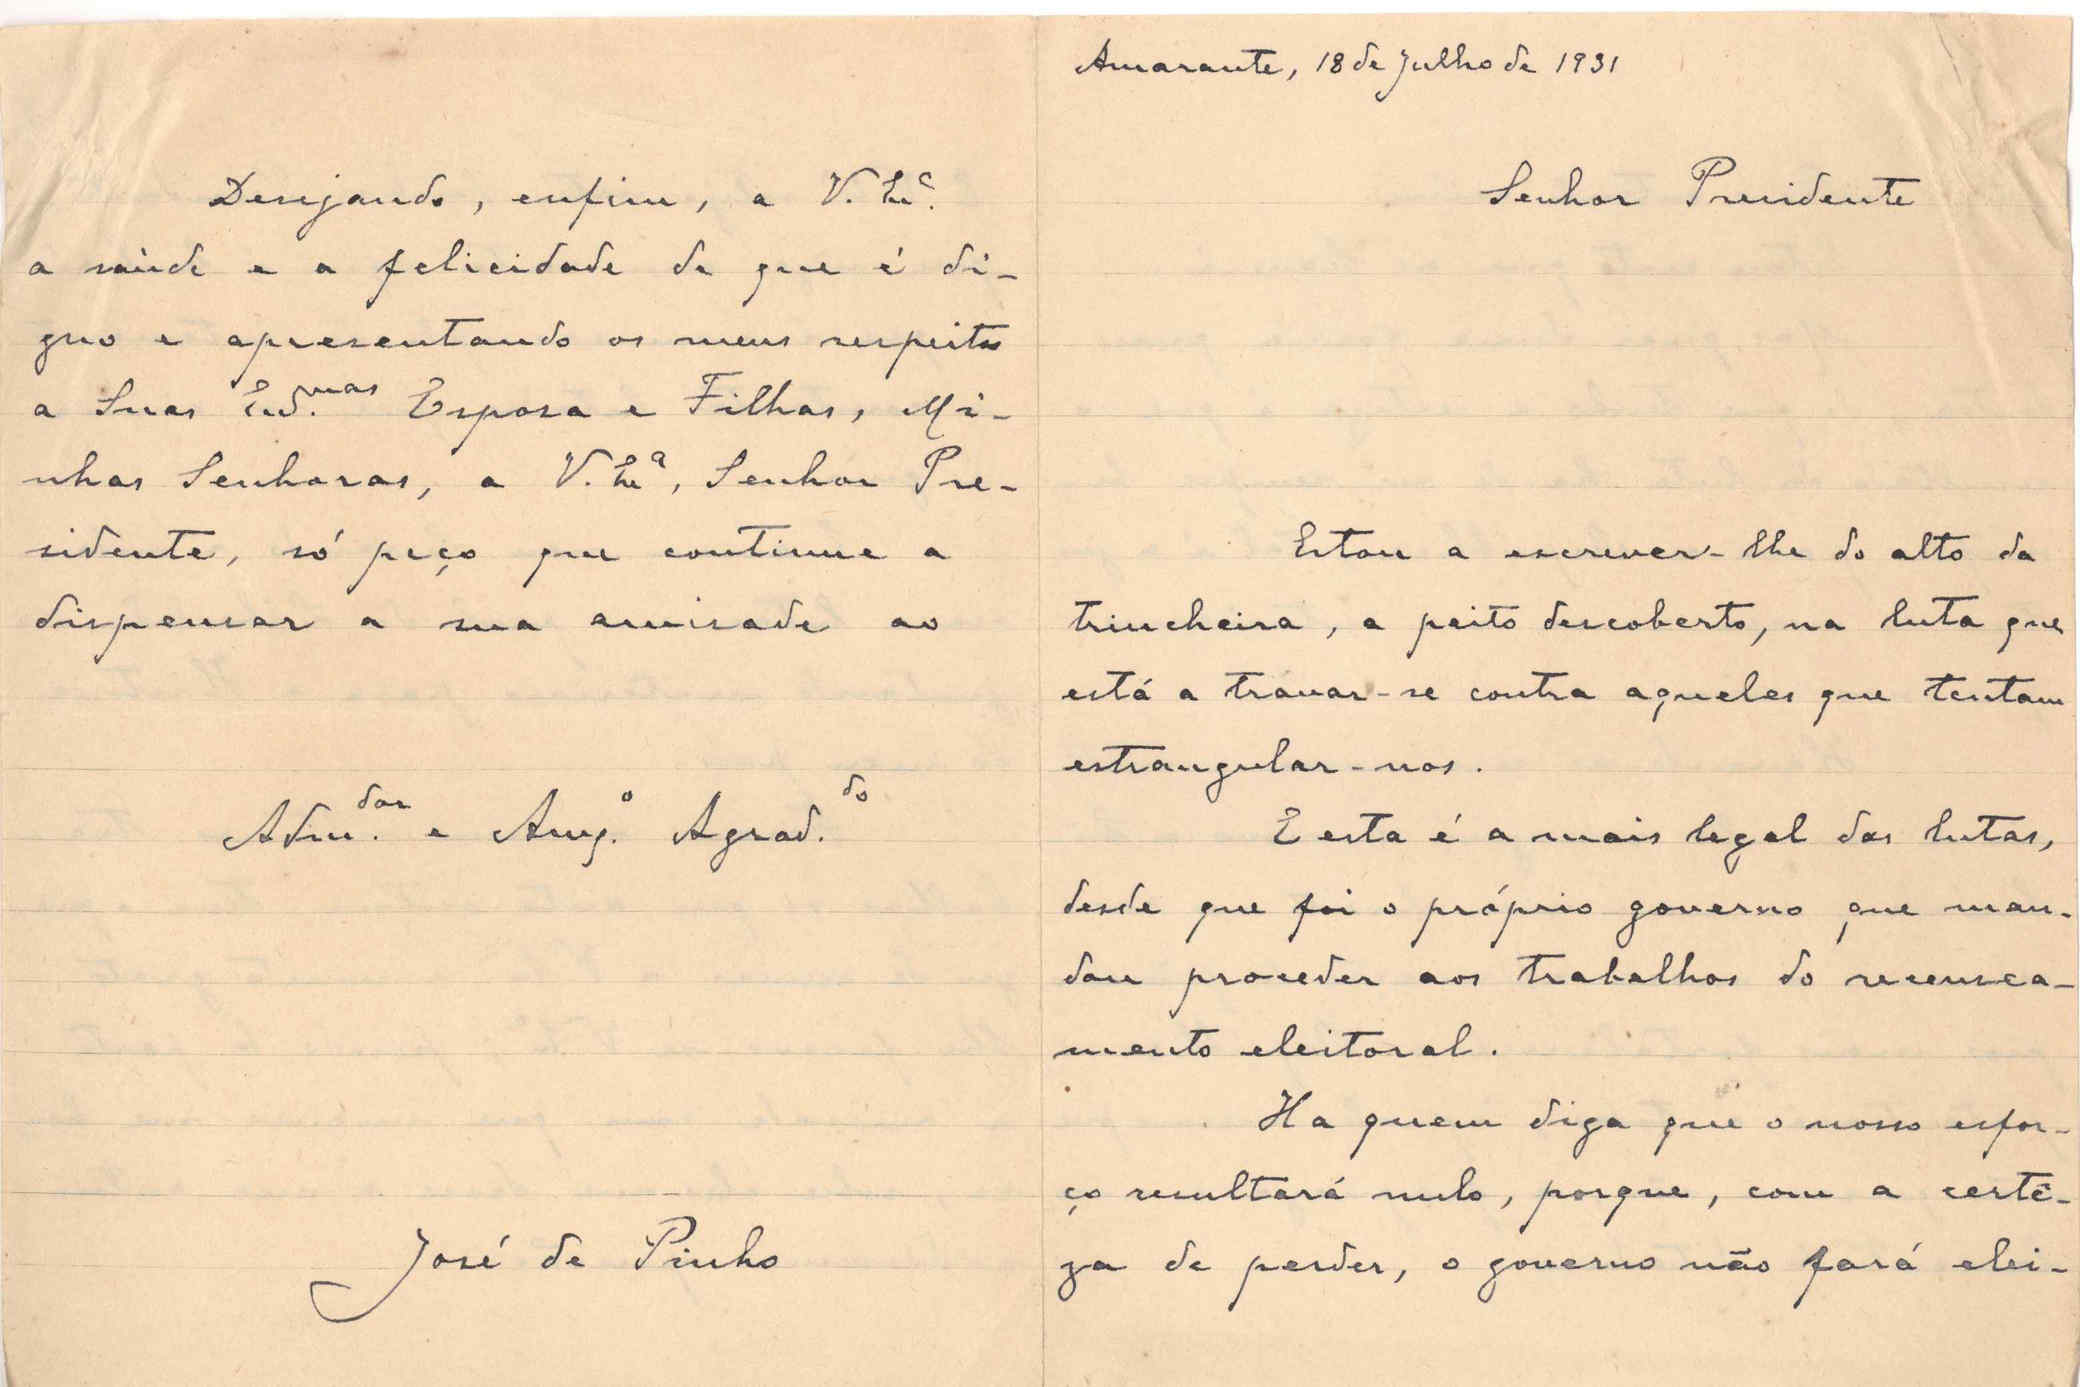 Amarante, 18 de Julho de 1931
Senhor Presidente
Estou a escrever-lhe do alto da
trincheira, a peito descoberto, na luta que
está a travar-se contra aqueles que tentam
estrangular-nos.
E esta é a mais legal das lutas,
desde que foi o próprio governo que man-
dou proceder aos trabalhos do recensea-
mento eleitoral.
Ha quem diga que o nosso esfor-
ço resultará nulo, porque, com a certê-
za de perder, o governo não fará elei-
Desejando, enfim, a V. Exª.
a saùde e a felicidade de que é di-
gno e apresentando os meus respeitos
a Suas Exd.mas Esposa e Filhas, Mi-
nhas Senhoras, a V. Exª, Senhor Pre-
sidente, só peço que continue a
dispensar a sua amisade ao
Adm.dor e Amg.o Agrad.do
José de Pinho